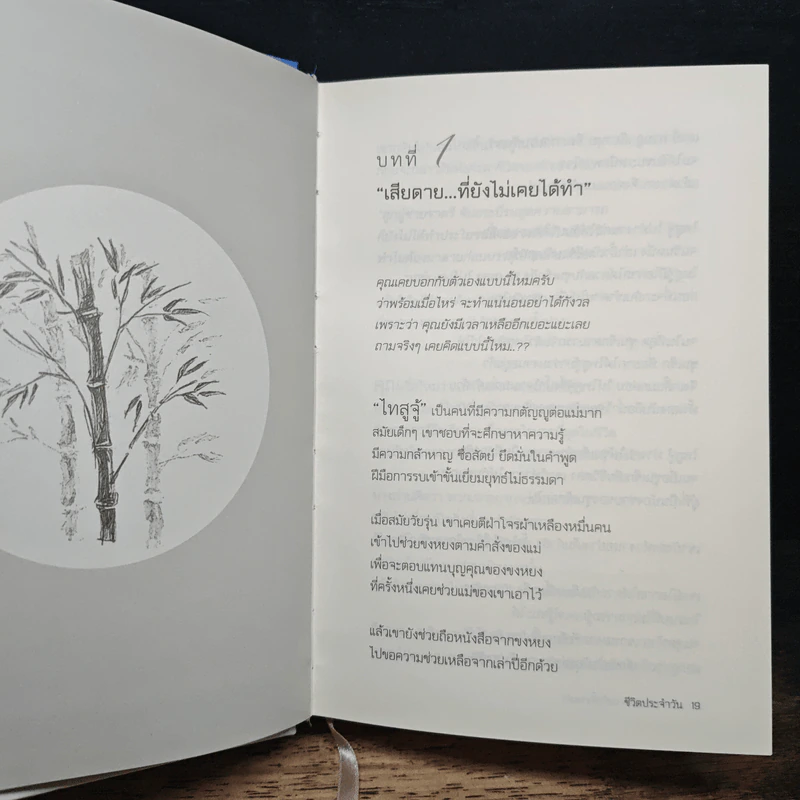 บทที่ 1
“เสียดาย...ที่ยังไม่เคยได้ทำ”
คุณเคยบอกกับตัวเองแบบนี้ไหมครับ
ว่าพร้อมเมื่อไหร่ จะทำแน่นอนอย่าได้กังวล
เพราะว่า คุณยังมีเวลาเหลืออีกเยอะแยะเลย
ถามจริงๆ เคยคิดแบบนี้ไหม..??
“ไทสูจู้” เป็นคนที่มีความกตัญญูต่อแม่มาก
สมัยเด็กๆ เขาชอบที่จะศึกษาหาความรู้
มีความกล้าหาญ ซื่อสัตย์ ยึดมั่นในคำพูด
ฝีมือการรบเข้าขั้นเยี่ยมยุทธ์ไม่ธรรมดา
เมื่อสมัยวัยรุ่น เขาเคยตีฝ่าโจรผ้าเหลืองหมื่นคน
เข้าไปช่วยขงหยงตามคำสั่งของแม่
เพื่อจะตอบแทนบุญคุณของขงหยง
ที่ครั้งหนึ่งเคยช่วยแม่ของเขาเอาไว้
แล้วเขายังช่วยถือหนังสือจากขงหยง
ไปขอความช่วยเหลือจากเล่าปี่อีกด้วย
ชีวิตประจำวัน 19